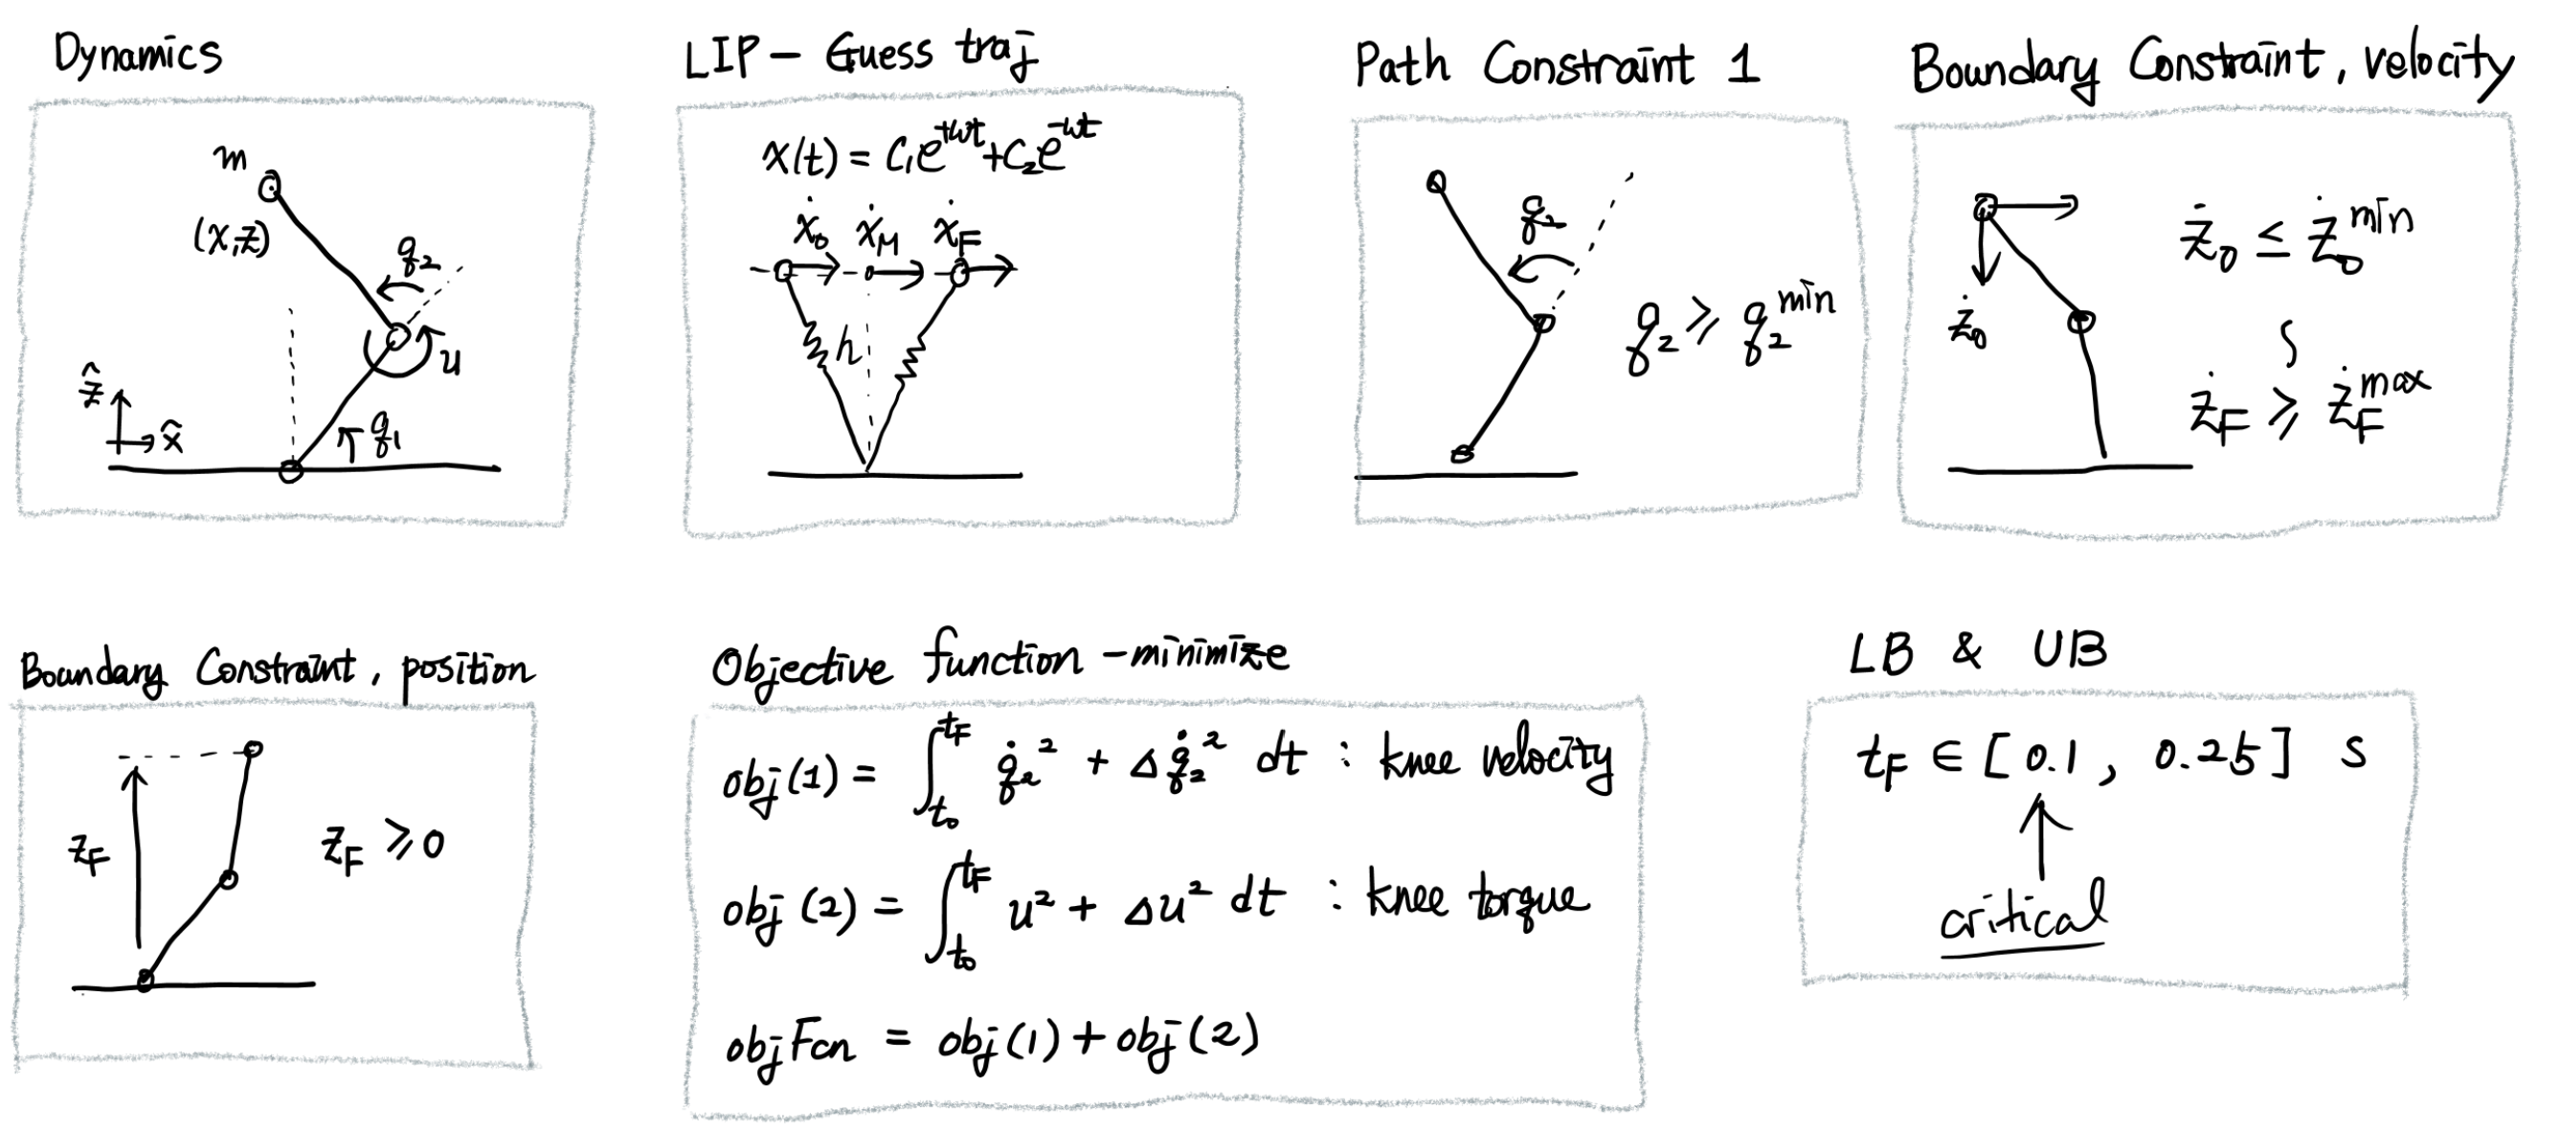 Dynamics
m
(x,z)
q₂
u
ẑ
x̂
q₁
LIP - Guess traj
x(t) = C₁e^{+wt}+C₂e^{-wt}
ẋ₀ ẋ_M ẋ_F
h
Path Constraint 1
q₂
q₂ ≥ q₂^{min}
Boundary Constraint, velocity
ż₀
ż₀ ≤ ż₀^{min}
ż_F ≥ ż_F^{max}
Boundary Constraint, position
z_F
z_F ≥ 0
Objective function - minimize
obj(1) = ∫_{t₀}^{t_F} q̇₂² + Δq̇₂² dt : knee velocity
obj(2) = ∫_{t₀}^{t_F} u² + Δu² dt : knee torque
objFcn = obj(1) + obj(2)
LB & UB
t_F ∈ [0.1, 0.25] s
critical